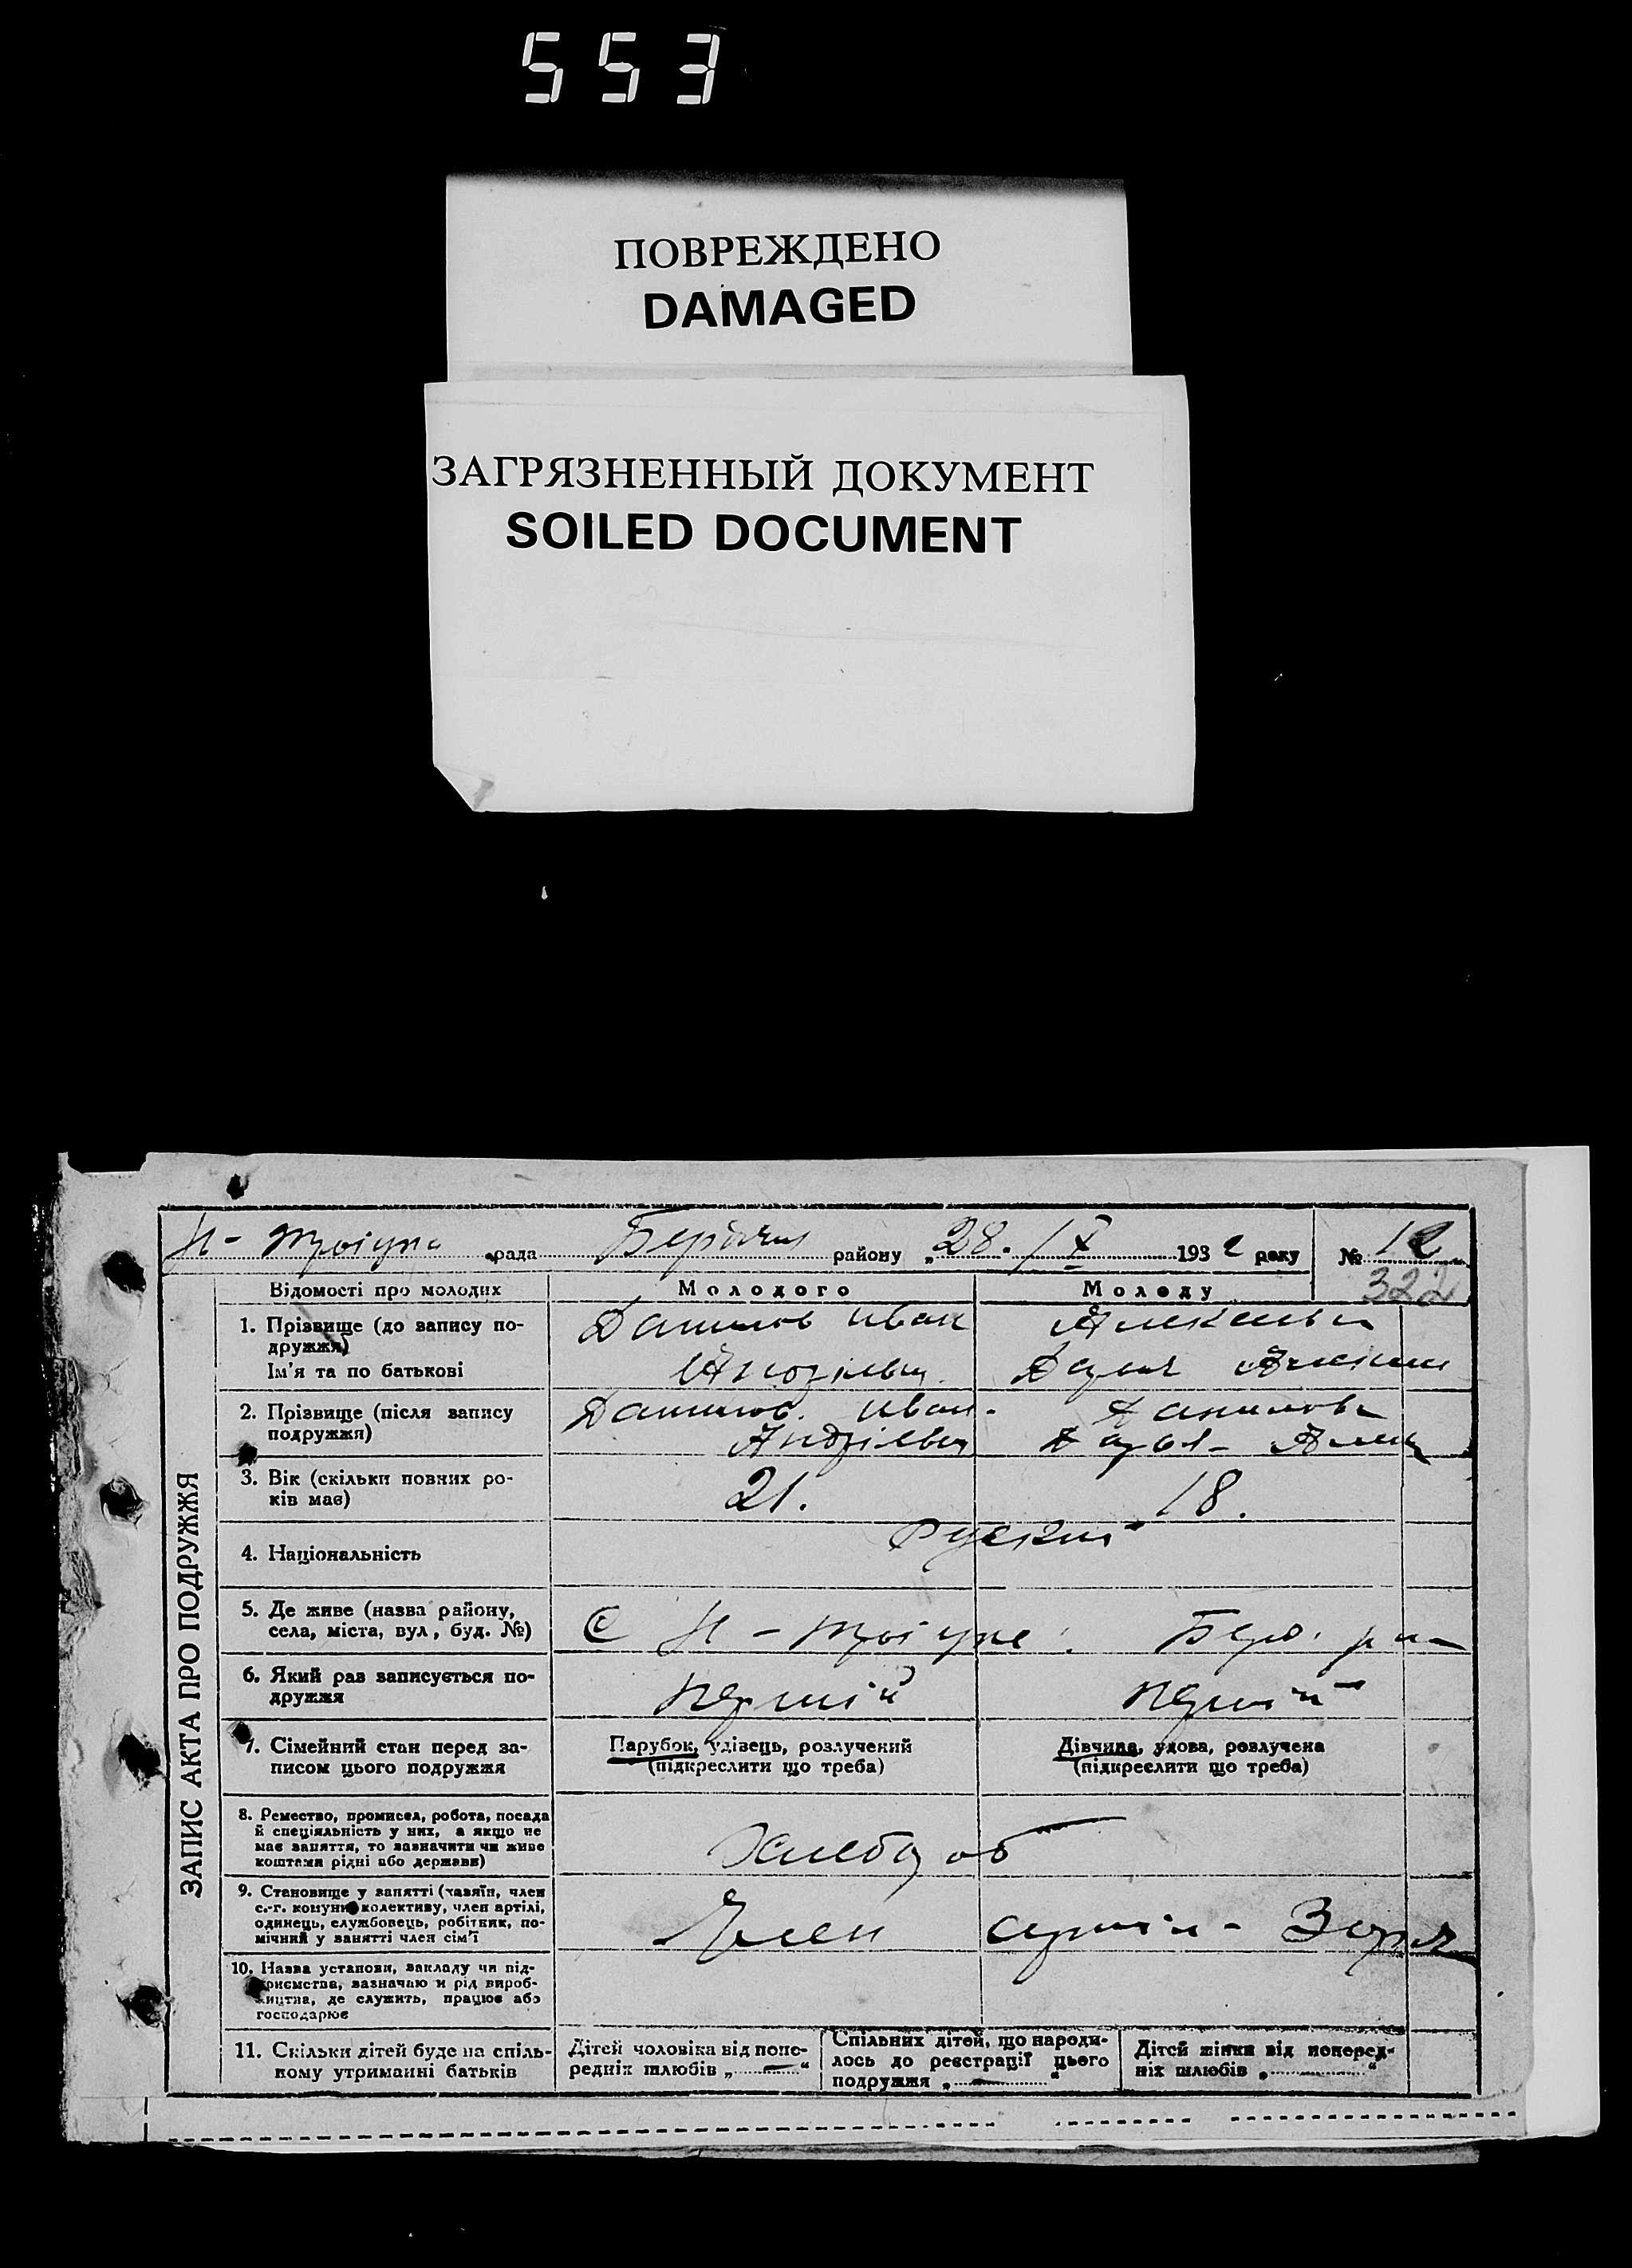 553
ПОВРЕЖДЕНО
DAMAGED
ЗАГРЯЗНЕННЫЙ ДОКУМЕНТ
SOILED DOCUMENT
ЗАПИС АКТА ПРО ПОДРУЖЖЯ
рада району „28. IX 1932 року № 12
322
Відомості про молодих Молодого Молоду
1. Прізвище (до запису по-
дружжя)
Ім'я та по батькові
Данилов Иван
2. Прізвище (після запису
подружжя)
Данилов. Иван. Данилова
Андрієвич
3. Вік (скільки повних ро-
ків має)
21. 18.
4. Національність
Руский
5. Де живе (назва району,
села, міста, вул, буд. №)
С
6. Який раз записується по-
дружжя
Перший Перший
7. Сімейний стан перед за-
писом цього подружжя
Парубок, удівець, розлучений
(підкреслити що треба)
Дівчина, удова, розлучена
(підкреслити що треба)
8. Ремество, промисел, робота, посада
й спеціяльність у них, а якщо не
має заняття, то зазначити чи живе
коштами рідні або держави)
Хлебороб
9. Становище у занятті (хазяїн, член
с.-г. комуни колективу, член артілі,
одинець, службовець, робітник, по-
мічний у занятті член сім'ї
Член артіли - Зоря
10. Назва установи, закладу чи під-
приємства, зазначаючи рід вироб-
ництва, де служить, працює або
господарює
11. Скільки дітей буде на спіль-
ному утриманні батьків
Дітей чоловіка від попе-
редніх шлюбів „ — “
Спільних дітей, що народи-
лось до реєстрації цього
подружжя „ — “
Дітей жінки від поперед-
ніх шлюбів „ “